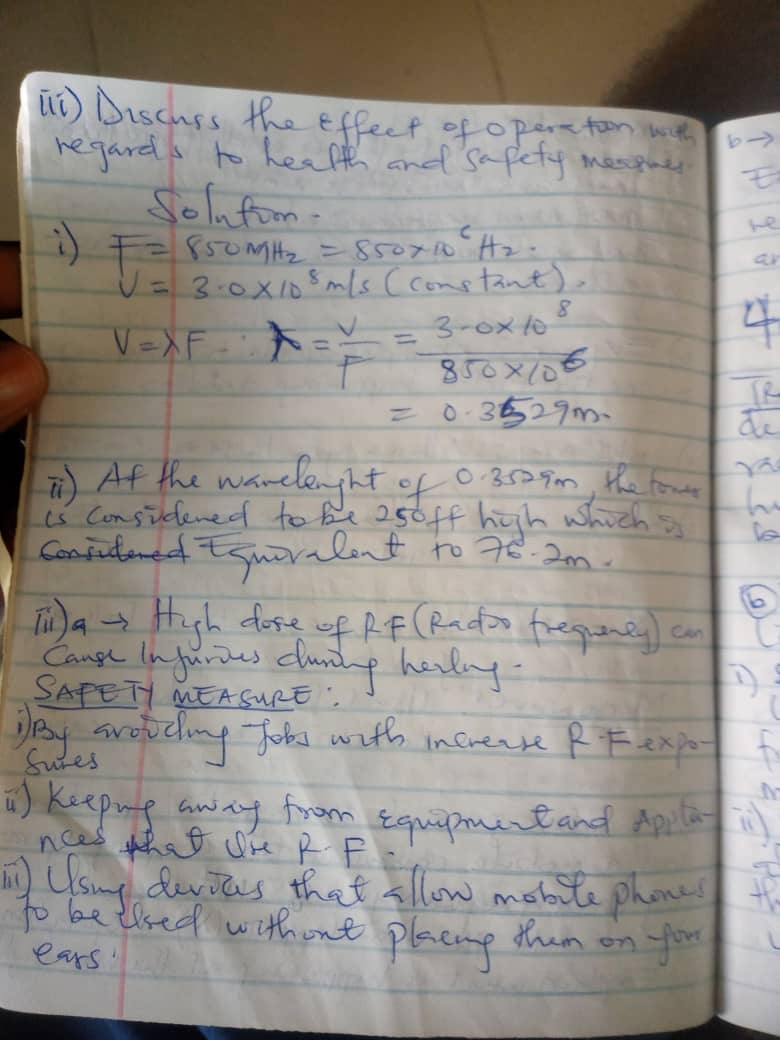 iii) Discuss the Effect of operation with
regards to health and Safety measures.
Solution.
i) F = 850MHz = 850x10⁶Hz.
V = 3.0x10⁸m/s (constant).
V=λF ∴ λ = V/F = 3.0x10⁸/850x10⁶
= 0.3529m.
ii) At the wavelenght of 0.3529m, the tower
is considered to be 250ft high which is
Considered Equivalent to 76.2m.
iii)a → High dose of RF (Radio frequency) can
Cause Injuries during
SAFETY MEASURE:
i) By avoiding Jobs with increase R.F expo-
sures
ii) Keeping away from Equipment and Applia-
nces that Use R.F.
iii) Using devices that allow mobile phones
to be Used without placing them on your
ears.
b →
4
b
i)
ii)